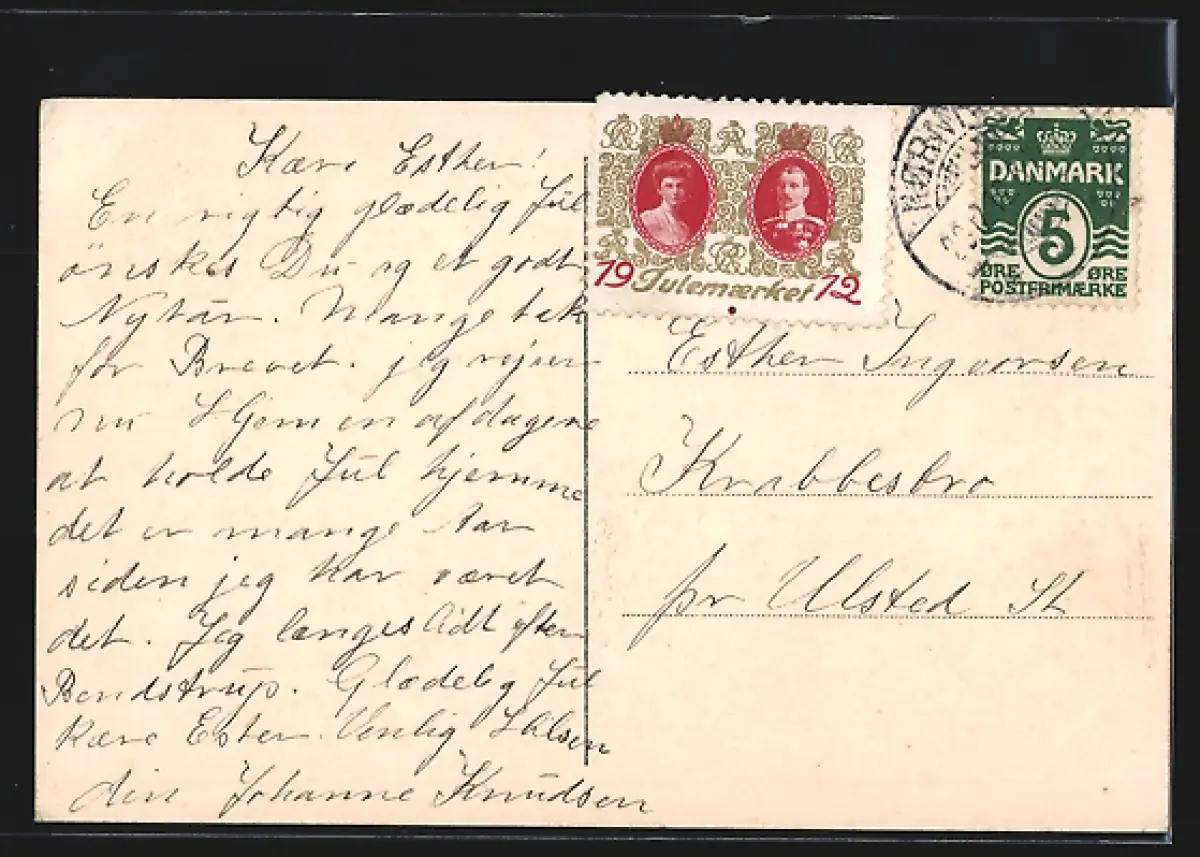 Kære Esther!
En rigtig glædelig Jul
ønskes Du og et godt
Nytår. Mange tak
for Brevet. jeg rejser
nu Hjem en af dagene
at holde Jul hjemme
det er mange Aar
siden jeg har været
det. Jeg længes lidt efter
Bendstrup. Glædelig Jul
kære Ester. Venlig Hilsen
din Johanne Knudsen
19 Julemærket 12
DANMARK
5
ØRE ØRE
POSTFRIMÆRKE
Esther Ingvorsen
Krabbesbro
pr Ulsted St